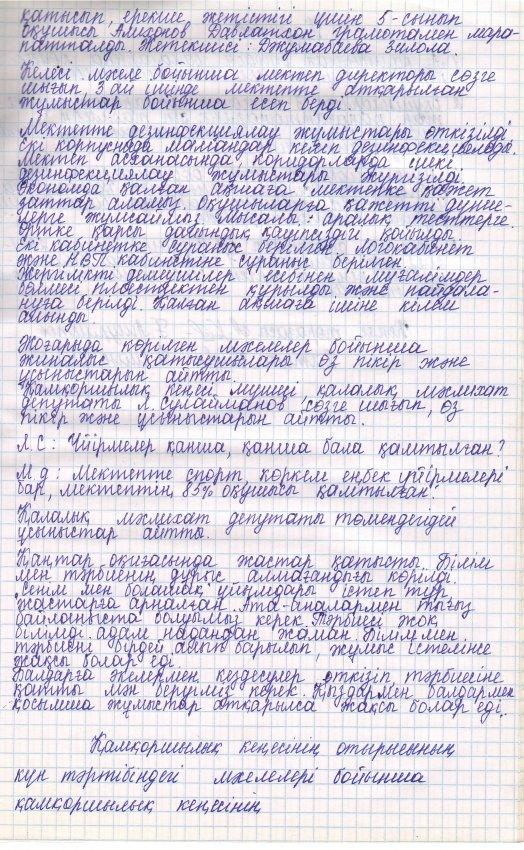 қатысып, ерекше жетістігі үшін 5-сынып
оқушысы Алиханов Давлатхон грамотамен мара-
патталды. Жетекшісі: Джумабаева Зилола.
Келесі мәселе бойынша мектеп директоры сөзге
шығып, 3 ай ішінде мектепте атқарылған
жұмыстар бойынша есеп берді.
Мектепте дезинфекциялау жұмыстары өткізілді
Екі корпусында мамандар келіп дезинфекциялады.
Мектеп асханасында, коридорларда ішкі
дезинфекциялау жұмыстары жүргізілді.
Экономда қалған ақшаға мектепке қажет
заттар аламыз. Оқушыларға қажетті дүние-
лерге жұмсаймыз. Мысалы: аралық тесттерге.
Өртке қарсы дағындық қауіпсіздігі қойылды.
Екі кабинетке сұраныс берілген. Логокабинет
және НВП кабинетіне сұраныс берілген.
Жергілікті демеушілер есебінен мұғалімдер
бөлмесі пластиктен құрылды және пайдала-
нуға берілді. Қалған ақшаға ішіне кілем
алынды.
Жоғарыда көрілген мәселелер бойынша
жиналыс қатысушылары өз пікір және
ұсыныстарын айтты.
Қамқоршылық кеңесі мүшесі, қалалық мәслихат
депутаты Л. Сулайманов сөзге шығып, өз
пікір және ұсыныстарын айтты.
Л.С: Үйірмелер қанша, қанша бала қамтылған?
М.д: Мектепте спорт, көркем еңбек үйірмелері
бар, мектептің 85% оқушысы қамтылған.
Қалалық мәслихат депутаты төмендегідей
ұсыныстар айтты.
Қаңтар оқиғасында жастар қатысты. Білім
мен тәрбиенің дұрыс алмағандығы көрінді.
Сенім мен болашақ ұйымдары істеп тұр
жастарға арналған. Ата-аналармен тығыз
байланыста болуымыз керек. Тәрбиесі жоқ
білімді адам надандан жаман. Білім мен
тәрбиені бірдей алып барылып, жұмыс істелінсе
жақсы болар еді.
Балдарға әкелермен кездесулер өткізіп, тәрбиесіне
қатты мән беруіміз керек. Қыздармен, балдармен
қосымша жұмыстар атқарылса жақсы болар еді.
Қамқоршылық кеңесінің отырысының
күн тәртібіндегі мәселелері бойынша
қамқоршылық кеңесінің